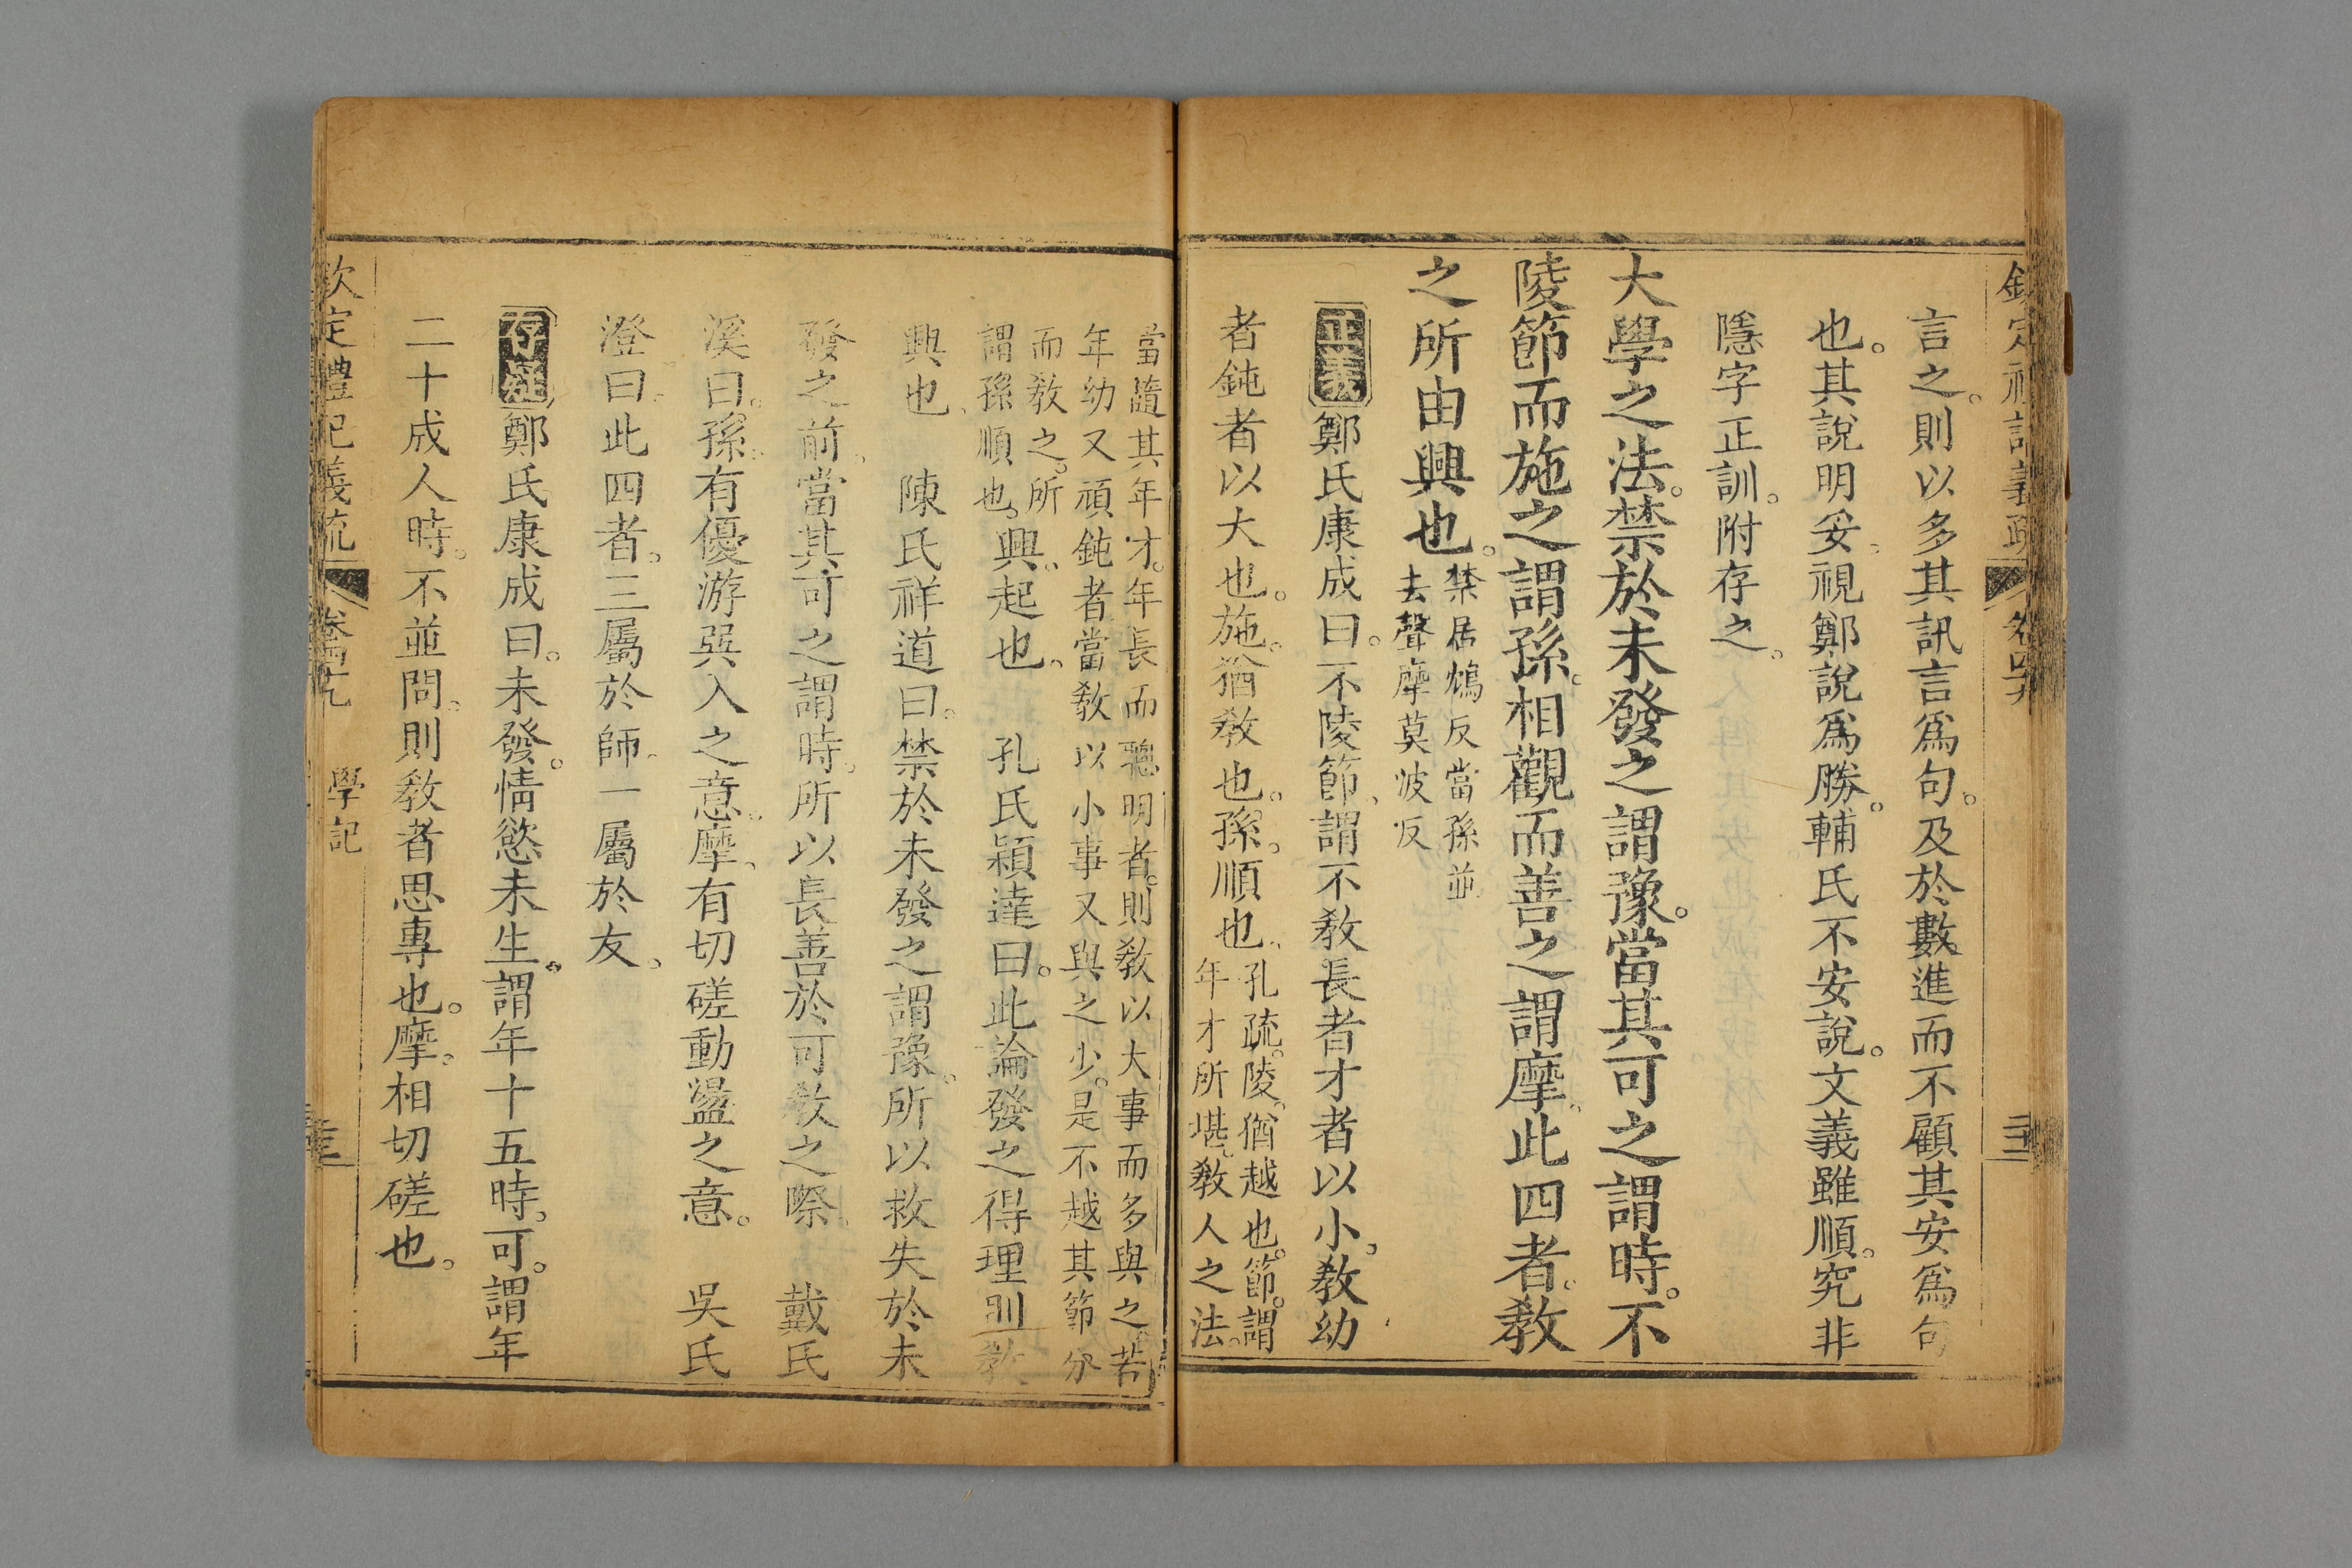 言之。則以多其訊言爲句。及於數進而不顧其安爲句
也。其說明妥。視鄭說爲勝。輔氏不安說。文義雖順。究非
隱字正訓。附存之。
大學之法。禁於未發之謂豫。當其可之謂時。不
陵節而施之謂孫。相觀而善之謂摩。此四者。教
之所由興也。
禁居鴆反當孫並
去聲摩莫波反
正義鄭氏康成曰。不陵節。謂不教長者才者以小。教幼
者鈍者以大也。施。猶教也。孫。順也。
孔疏。陵。猶越也。節。謂
年才所堪。教人之法。
當隨其年才。年長而聰明者。則教以大事而多與之。若
年幼又頑鈍者當教以小事又與之少。是不越其節分
而教之。所
謂孫順也。
興。起也。 孔氏穎達曰。此論發之得理則教
興也 陳氏祥道曰。禁於未發之謂豫。所以救失於未
發之前。當其可之謂時。所以長善於可教之際。 戴氏
溪曰。孫。有優游巽入之意。摩。有切磋動盪之意。 吳氏
澄曰。此四者。三屬於師。一屬於友。
存疑鄭氏康成曰。未發。情慾未生。謂年十五時。可。謂年
二十成人時。不並問。則教者思專也。摩。相切磋也。
欽定禮記義疏 學記